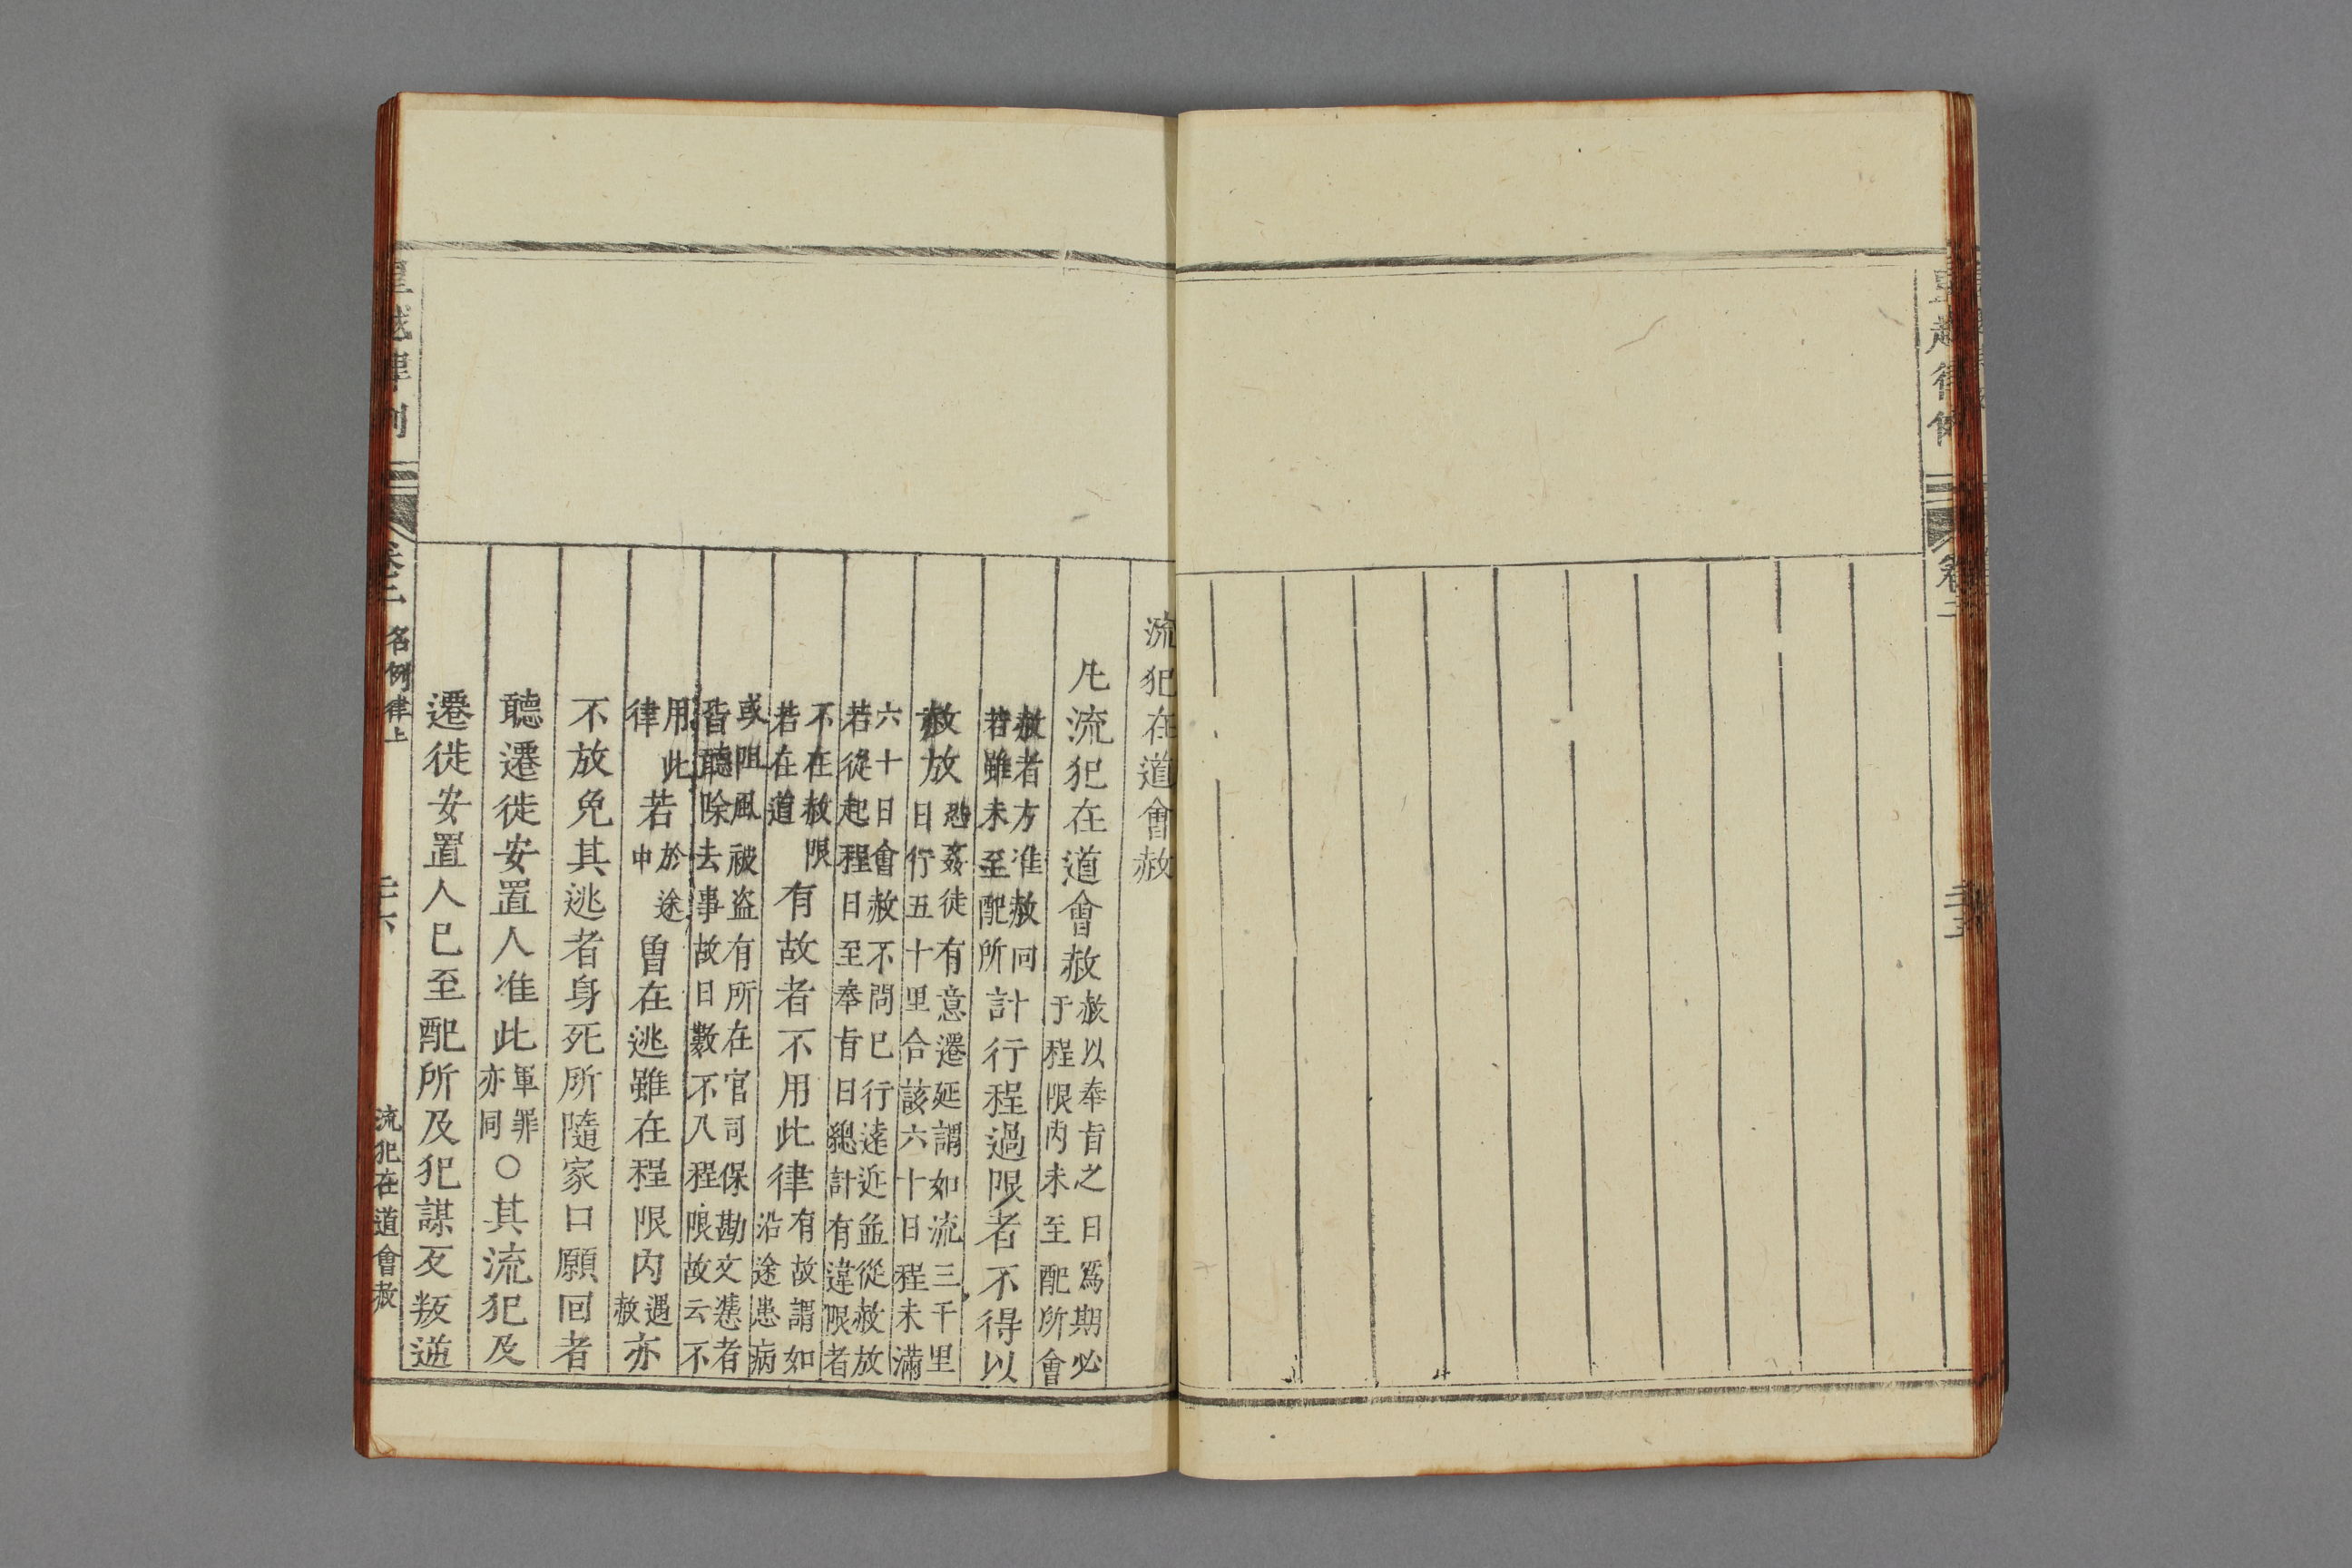 皇越律例 卷二
流犯在道會赦
凡流犯在道會赦赦以奉旨之日爲期必于程限內未至配所會
赦者方准赦回若雖未至配所計行程過限者不得以
赦放恐姦徒有意遷延謂如流三千里日行五十里合該六十日程未滿
六十日會赦不問已行遠近並從赦放若從起程日至奉旨日總計有違限者
不在赦限若在道有故者不用此律有故謂如沿途患病
或阻風被盗有所在官司保勘文憑者皆聽除去事故日數不入程限故云不
用此律若於途中曾在逃雖在程限内遇赦亦
不放免其逃者身死所隨家口願回者
聽遷徙安置人准此軍罪亦同○其流犯及
遷徙安置人已至配所及犯謀反叛逆
皇越律例 卷二 名例律上 二十六 流犯在道會赦